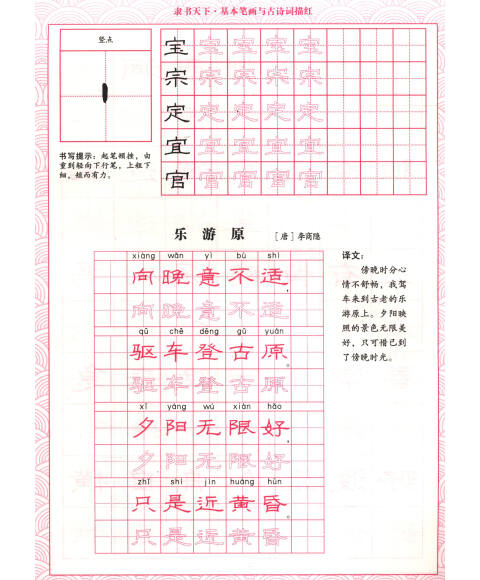 隶书天下·基本笔画与古诗词描红
竖点
宝宝宝宝宝
宗宗宗宗宗
定定定定定
宜宜宜宜宜
官官官官官
书写提示：起笔顿挫，由
重到轻向下行笔，上粗下
细，短而有力。
乐游原 [唐]李商隐
xiàng wǎn yì bù shì
向晚意不适，
向晚意不适
qū chē dēng gǔ yuán
驱车登古原。
驱车登古原
xī yáng wú xiàn hǎo
夕阳无限好，
夕阳无限好
zhǐ shì jìn huáng hūn
只是近黄昏。
只是近黄昏
译文：
傍晚时分心
情不舒畅，我驾
车来到古老的乐
游原上。夕阳映
照的景色无限美
好，只可惜已到
了傍晚时光。